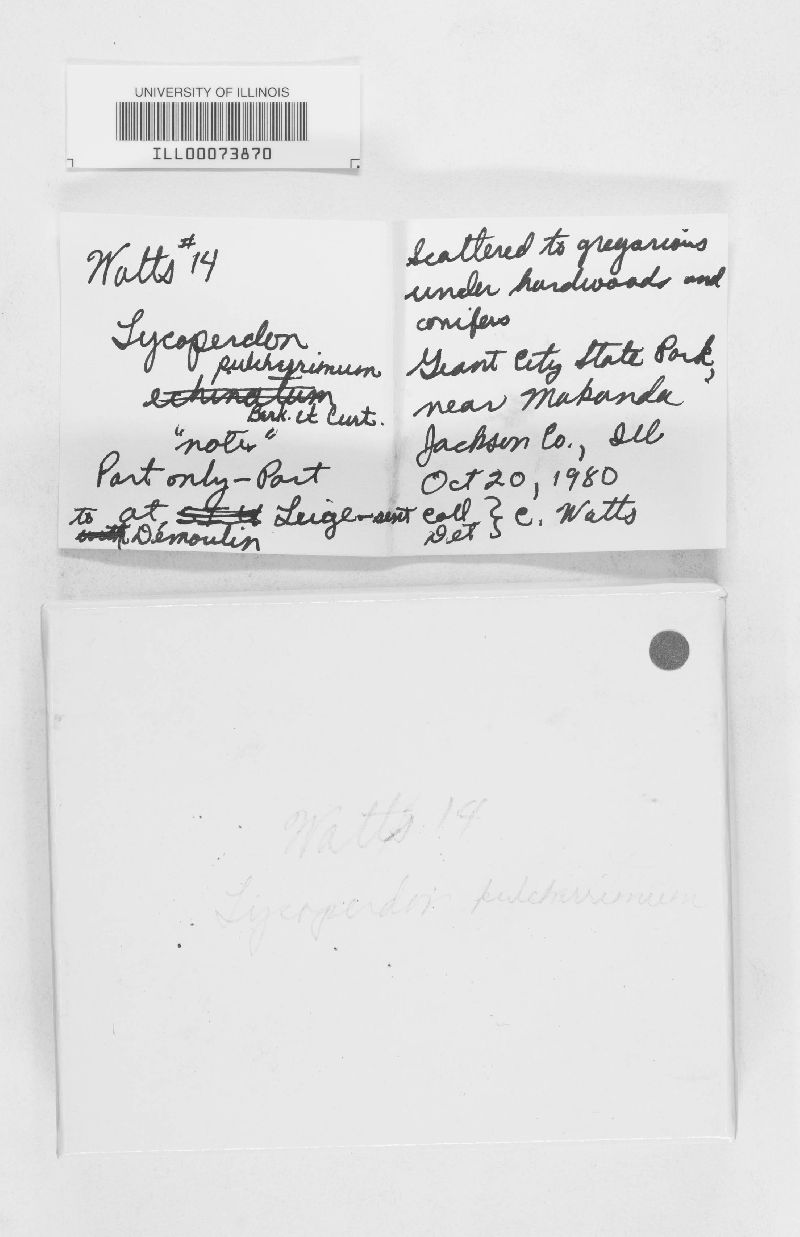 UNIVERSITY OF ILLINOIS
ILL00073870
Watts #14
Lycoperdon
pulcherrimum
echinatum
Berk. et Curt.
"note"
Part only - Part
at Leige - sent
to with Demoulin
Scattered to gregarious
under hardwoods and
conifers
Giant City State Park,
near Makanda
Jackson Co., Ill
Oct 20, 1980
Coll } C. Watts
Det
Watts 14
Lycoperdon pulcherrimum